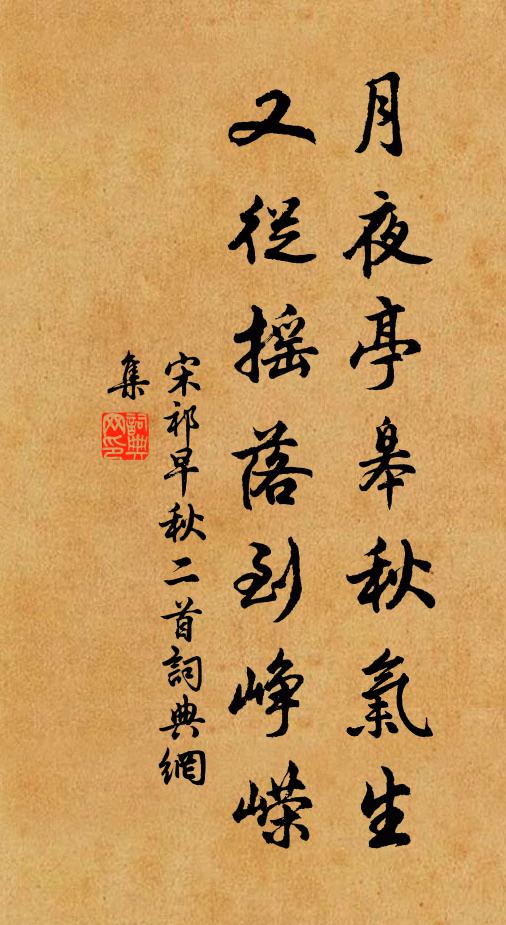 月夜亭皋秋氣生
又從摇落到崢嶸
宋祁早秋二首詞典網
集
詞典網印